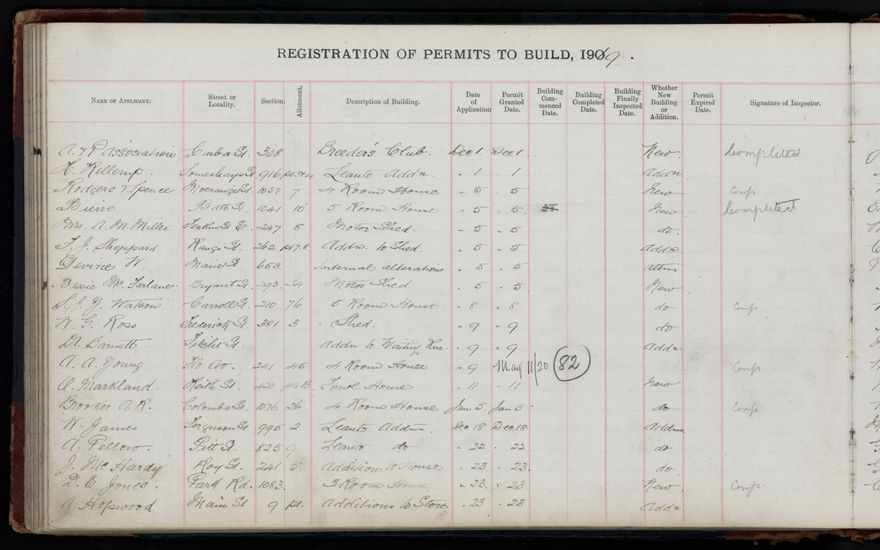 REGISTRATION OF PERMITS TO BUILD, 1909.
NAME OF APPLICANT. Street or Locality. Section. Allotment. Description of Building. Date of Application Permit Granted Date. Building Com-menced Date. Building Completed Date. Building Finally Inspected Date. Whether New Building or Addition. Permit Expired Date. Signature of Inspector.
A & P Association Cuba St. 308 Breeders' Club. Dec 1. Dec 1. New. Completed
Leanto Addn. " 1 " 1 Addn
Rodgers & Spence 1057 7 4 Room House " 5 " 5 New Comp
1041 10 5 Room House " 5 " 5 New Completed
Mrs. A. M. Miller 247 8 Motor Shed. " 5 " 5 do.
T. J. Sheppard Rangi St. 262 Addn. to Shed. " 5 " 5 Addn
Devine W. Main St 653 Internal alterations " 5 " 5 altns
Bessie McFarlane Bryant St. 293 Motor Shed " 5 " 5 New
Watson Carroll St. 210 76 5 Room House " 8 " 8 do Comp
W. G. Ross Frederick St. 381 3 Shed. " 9 " 9 do
Barnett Addn to Waiting Rm. " 9 " 9 Addn
A. A. Young 241 45 4 Room House " 9 May 11/20 82 Comp
Markland. Keith St. Fowl House " 11 " 11 New
Brooker A. R. Colombo St. 1076 26 4 Room House Jan 5. Jan 5 do Comp
W. James Ferguson St 995 2 Leanto Addn. Dec 18 Dec 18 Addn
A. Pellow. Pitt St. 825 9 Leanto do " 22 " 22 do
J. McHardy Roy St. 241 5 Addition to House " 23 " 23 do
D. E. Jones. Park Rd. 1083. 5 Room House " 23 " 23 New Comp
A Hopwood Main St 9 pt. Additions to Store " 23 " 23 Addn